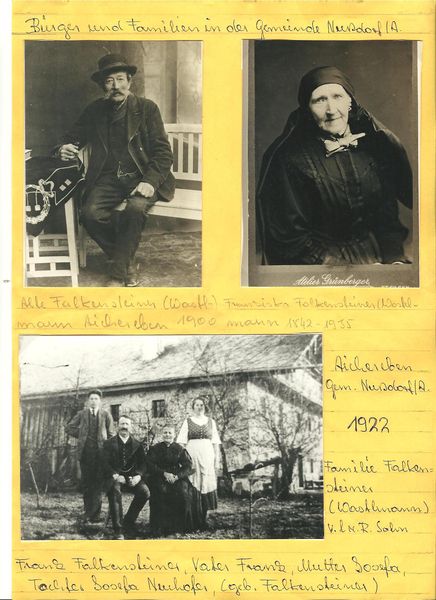 Bürger und Familien in der Gemeinde Nußdorf/A.
Atelier Grünberger
Alte Falkensteiner (Wastl-
mann Aichereben 1900
Franziska Falkensteiner (Wastl-
mann 1842-1935
Aichereben
Gem. Nußdorf/A.
1922
Familie Falken-
steiner
(Wastlmann)
v. l. n. R. Sohn
Franz Falkensteiner, Vater Franz, Mutter Josefa,
Tochter Josefa Neuhofer, (geb. Falkensteiner)